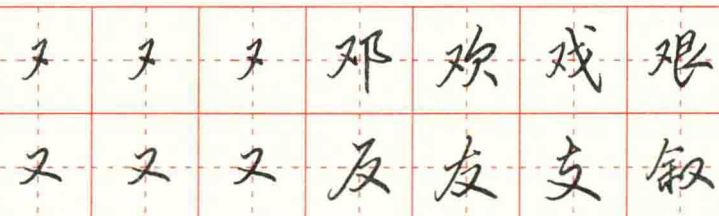 又又又邓欢戏艰
又又又反友支叙